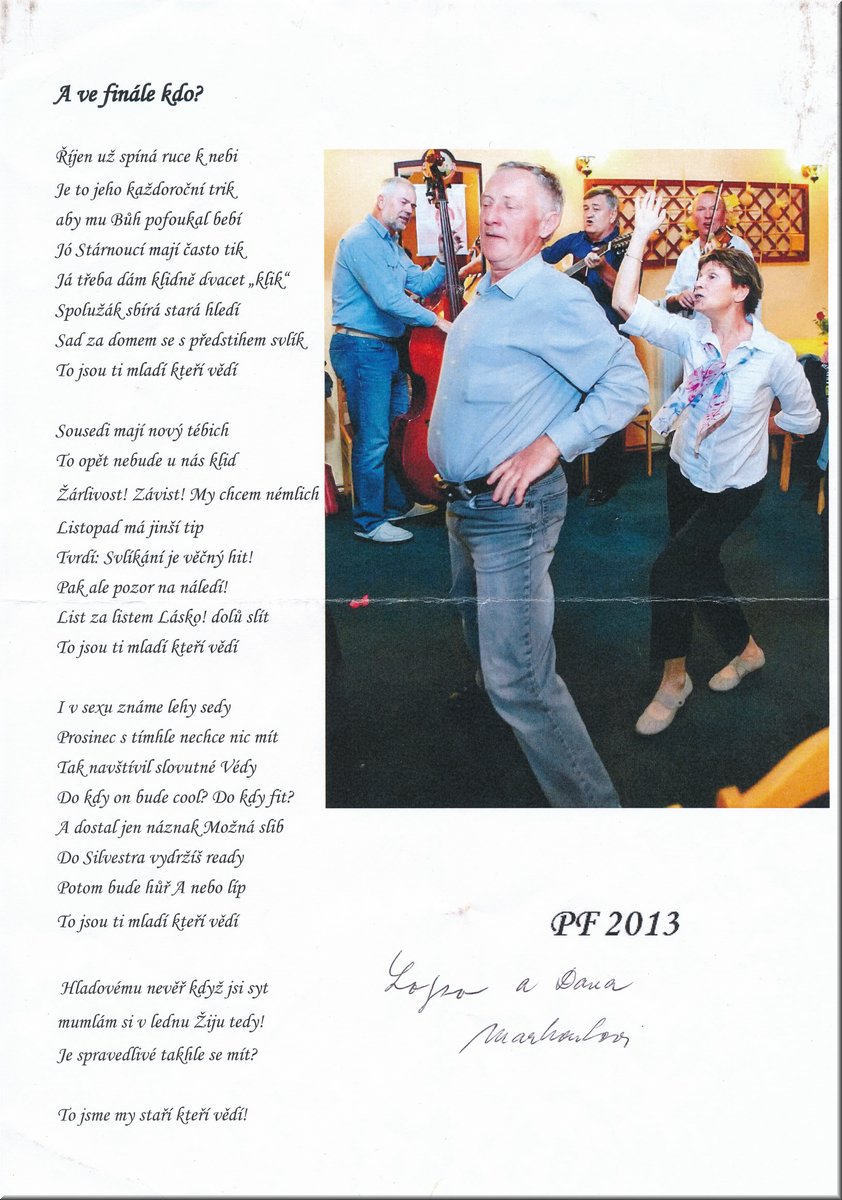 A ve finále kdo?
Říjen už spíná ruce k nebi
Je to jeho každoroční trik
aby mu Bůh pofoukal bebí
Jó Stárnoucí mají často tik
Já třeba dám klidně dvacet „klik“
Spolužák sbírá stará hledí
Sad za domem se s předstihem svlík
To jsou ti mladí kteří vědí
Sousedi mají nový tébich
To opět nebude u nás klid
Žárlivost! Závist! My chcem némlich
Listopad má jinší tip
Tvrdí: Svlíkání je věčný hit!
Pak ale pozor na náledí!
List za listem Lásko! dolů slít
To jsou ti mladí kteří vědí
I v sexu známe lehy sedy
Prosinec s tímhle nechce nic mít
Tak navštívil slovutné Védy
Do kdy on bude cool? Do kdy fit?
A dostal jen náznak Možná slib
Do Silvestra vydržíš ready
Potom bude hůř A nebo líp
To jsou ti mladí kteří vědí
Hladovému nevěř když jsi syt
mumlám si v lednu Žiju tedy!
Je spravedlivé takhle se mít?
To jsme my staří kteří vědí!
PF 2013
a Dana